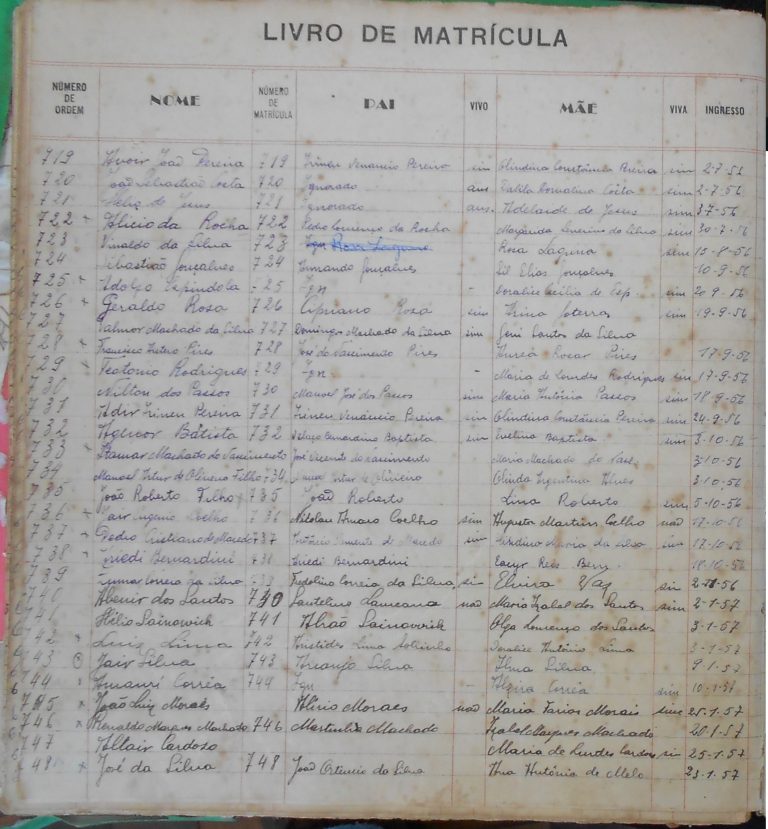 LIVRO DE MATRÍCULA
NÚMERO DE ORDEM NOME NÚMERO DE MATRÍCULA PAI VIVO MÃE VIVA INGRESSO
719 João Pereira 719 Irineu Venancio Pereira sim Olindina Constância Pereira sim 2-7-56
720 João Sebastião Costa 720 Ignorado aus Costa sim 2-7-56
721 Feliz de Jesus 721 Ignorado aus. Adelaide de Jesus sim 3-7-56
722 Alicio da Rocha 722 Pedro Lourenço da Rocha Margarida da Silva sim 30-7-56
723 Vinaldo da Silva 723 Ign Rosa Laguna sim 15-8-56
724 Sebastião Gonçalves 724 Armando Gonçalves Elias Gonçalves 10-9-56
725 Adolfo Espindola 725 Ign - Doralice Cecilia de Esp. sim 20-9-56
726 Geraldo Rosa 726 Cipriano Rosa sim sim 19-9-56
727 Valmor Machado da Silva 727 Domingos Machado da Silva sim Geni Santos da Silva
728 Francisco Pires 728 José do Nascimento Pires Aurea Pires 17-9-56
729 Teotonio Rodrigues 729 Ign - Maria de Lourdes Rodrigues sim 17-9-56
730 Nilton dos Passos 730 Manoel José dos Passos sim Maria Antônia Passos sim 18-9-56
731 Adir Irineu Pereira 731 Irineu Venâncio Pereira sim Olindina Constância Pereira sim 24-9-56
732 Agenor Batista 732 Bernardino Baptista sim Evelina Baptista sim 3-10-56
733 Itamar Machado do Nascimento José Vicente do Nascimento Maria Machado do Nasc. 3-10-56
734 Manoel Artur de Oliveira Filho 734 Artur de Oliveira Olinda Argentina Alves 3-10-56
735 João Roberto Filho 735 João Roberto Lina Roberto sim 5-10-56
736 Jair Eugenio Coelho 736 Nicolau Amaro Coelho sim Augusta Martins Coelho não 17-10-56
737 Pedro Cristiano de Macedo 737 Antônio de Macedo sim Maria da Silva sim 17-10-56
738 Friedi Bernardini 738 Friedi Bernardini Reis Bern. 18-10-56
739 Correia da Silva 739 Fridolino Correia da Silva sim Elvira Vaz sim 56
740 Abenir dos Santos 740 Santelino Laureano não Maria Izabel dos Santos sim 2-1-57
741 Hélio Sainovich 741 Abrão Sainovich Olga Lourenço dos Santos 3-1-57
742 Luiz Lima 742 Aristides Lima Doralice Antônio Lima 3-1-57
743 Jair Silva 743 Araujo Silva Ana Silva 9-1-57
744 Amauri Corrêa 744 Ign - Alzira Corrêa sim 10-1-57
745 João Luiz Moraes Alirio Moraes não Maria Farias Morais sim 25-1-57
746 Renaldo Marques Machado 746 Martinho Machado Izabel Marques Machado 20-1-57
747 Altair Cardoso Maria de Lurdes Cardoso sim 25-1-57
748 José da Silva 748 João Ortencio da Silva Ana Antônia de Melo 23-1-57